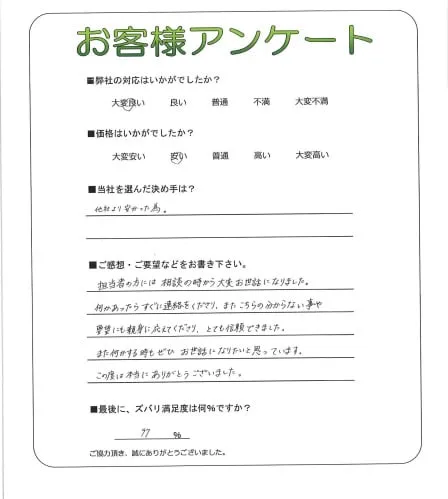 お客様アンケート
■弊社の対応はいかがでしたか？
大変良い 良い 普通 不満 大変不満
■価格はいかがでしたか？
大変安い 安い 普通 高い 大変高い
■当社を選んだ決め手は？
他社より安かった為。
■ご感想・ご要望などをお書き下さい。
担当者の方には 相談の時から大変お世話になりました。
何かあったらすぐに連絡をくださり、またこちらの分からない事や
要望にも親身に応えてくださり、とても信頼できました。
また何かする時もぜひ お世話になりたいと思っています。
この度は本当に ありがとうございました。
■最後に、ズバリ満足度は何%ですか？
%
ご協力頂き、誠にありがとうございました。